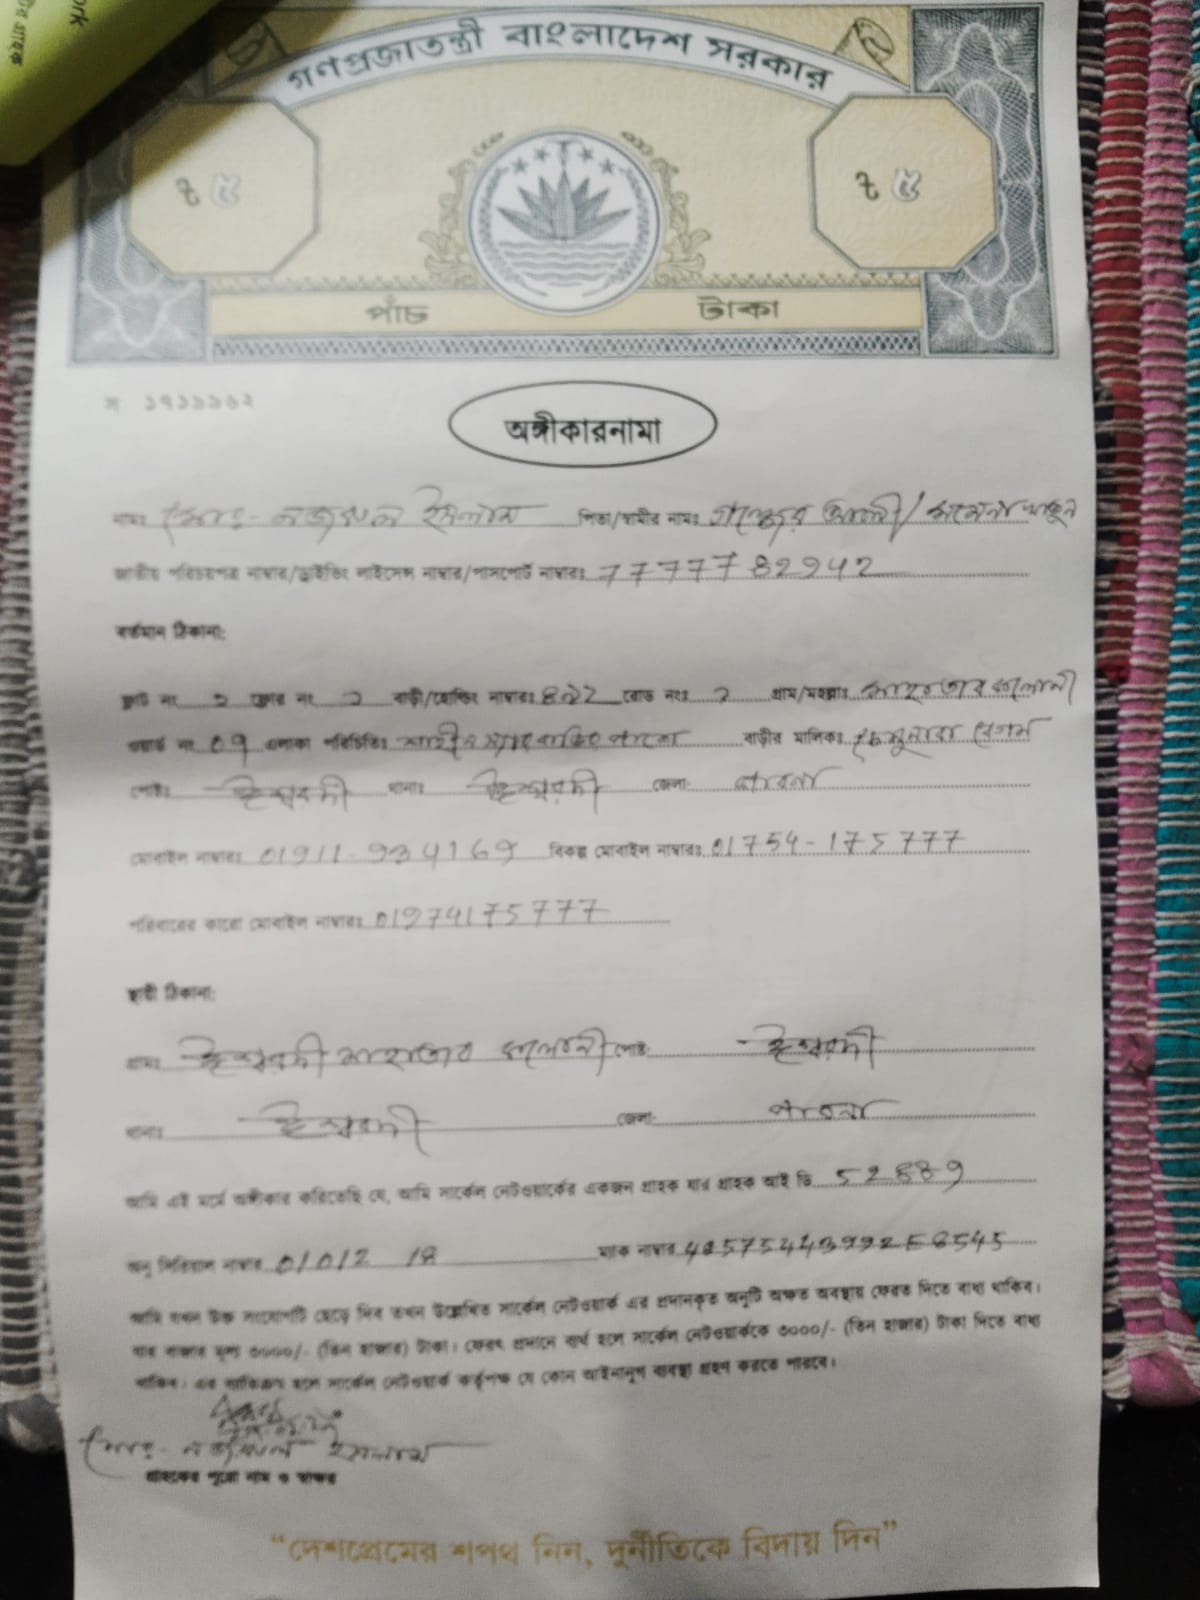 গণপ্রজাতন্ত্রী বাংলাদেশ সরকার
৳ ৫ ৳ ৫
পাঁচ টাকা
অঙ্গীকারনামা
নামঃ মোঃ নজরুল ইসলাম পিতা/স্বামীর নামঃ আলী/ খাতুন
জাতীয় পরিচয়পত্র নাম্বার/ড্রাইভিং লাইসেন্স নাম্বার/পাসপোর্ট নাম্বারঃ 7777782942
বর্তমান ঠিকানা:
ফ্লাট নং ২ ফ্লোর নং ২ বাড়ী/হোল্ডিং নাম্বারঃ রোড নংঃ ২ গ্রাম/মহল্লাঃ কলোনী
ওয়ার্ড নং 09 এলাকা পরিচিতিঃ বাড়ীর মালিকঃ বেগম
পোষ্টঃ ঈশ্বরদী থানাঃ ঈশ্বরদী জেলা: পাবনা
মোবাইল নাম্বারঃ 01911-934169 বিকল্প মোবাইল নাম্বারঃ 01754-175777
পরিবারের কারো মোবাইল নাম্বারঃ 01974175777
স্থায়ী ঠিকানা:
গ্রামঃ ঈশ্বরদী কলোনী পোষ্ট: ঈশ্বরদী
থানাঃ ঈশ্বরদী জেলা: পাবনা
আমি এই মর্মে অঙ্গীকার করিতেছি যে, আমি সার্কেল নেটওয়ার্কের একজন গ্রাহক যার গ্রাহক আই ডি
অনু সিরিয়াল নাম্বার ম্যাক নাম্বার
আমি যখন উক্ত সংযোগটি ছেড়ে দিব তখন উল্লেখিত সার্কেল নেটওয়ার্ক এর প্রদানকৃত অনুটি অক্ষত অবস্থায় ফেরত দিতে বাধ্য থাকিব।
যার বাজার মূল্য ৩০০০/- (তিন হাজার) টাকা। ফেরৎ প্রদানে ব্যর্থ হলে সার্কেল নেটওয়ার্ককে ৩০০০/- (তিন হাজার) টাকা দিতে বাধ্য
থাকিব। এর ব্যতিক্রম হলে সার্কেল নেটওয়ার্ক কর্তৃপক্ষ যে কোন আইনানুগ ব্যবস্থা গ্রহণ করতে পারবে।
মোঃ নজরুল ইসলাম
গ্রাহকের পুরো নাম ও স্বাক্ষর
“দেশপ্রেমের শপথ নিন, দুর্নীতিকে বিদায় দিন”